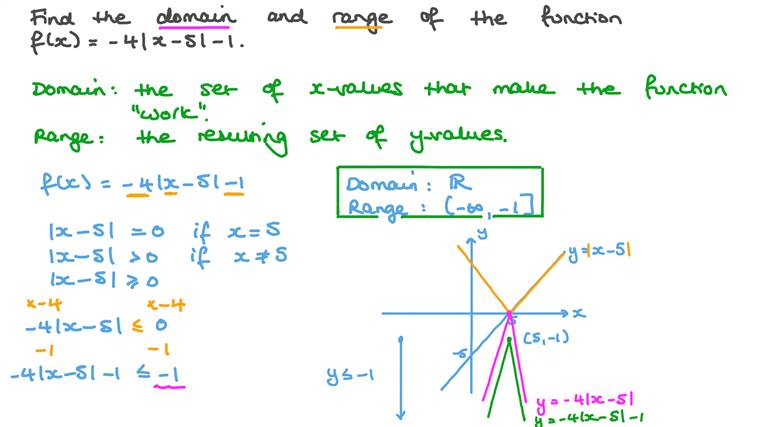 Find the domain and range of the function
f(x) = -4|x-5|-1.
Domain: the set of x-values that make the function
"work".
Range: the resulting set of y-values.
f(x) = -4|x-5|-1
|x-5| = 0 if x=5
|x-5| > 0 if x≠5
|x-5| ≥ 0
x-4 x-4
-4|x-5| ≤ 0
-1 -1
-4|x-5|-1 ≤ -1
Domain: ℝ
Range: (-∞, -1]
y
y=|x-5|
x
5
(5,-1)
-5
y≤-1
y=-4|x-5|
y=-4|x-5|-1